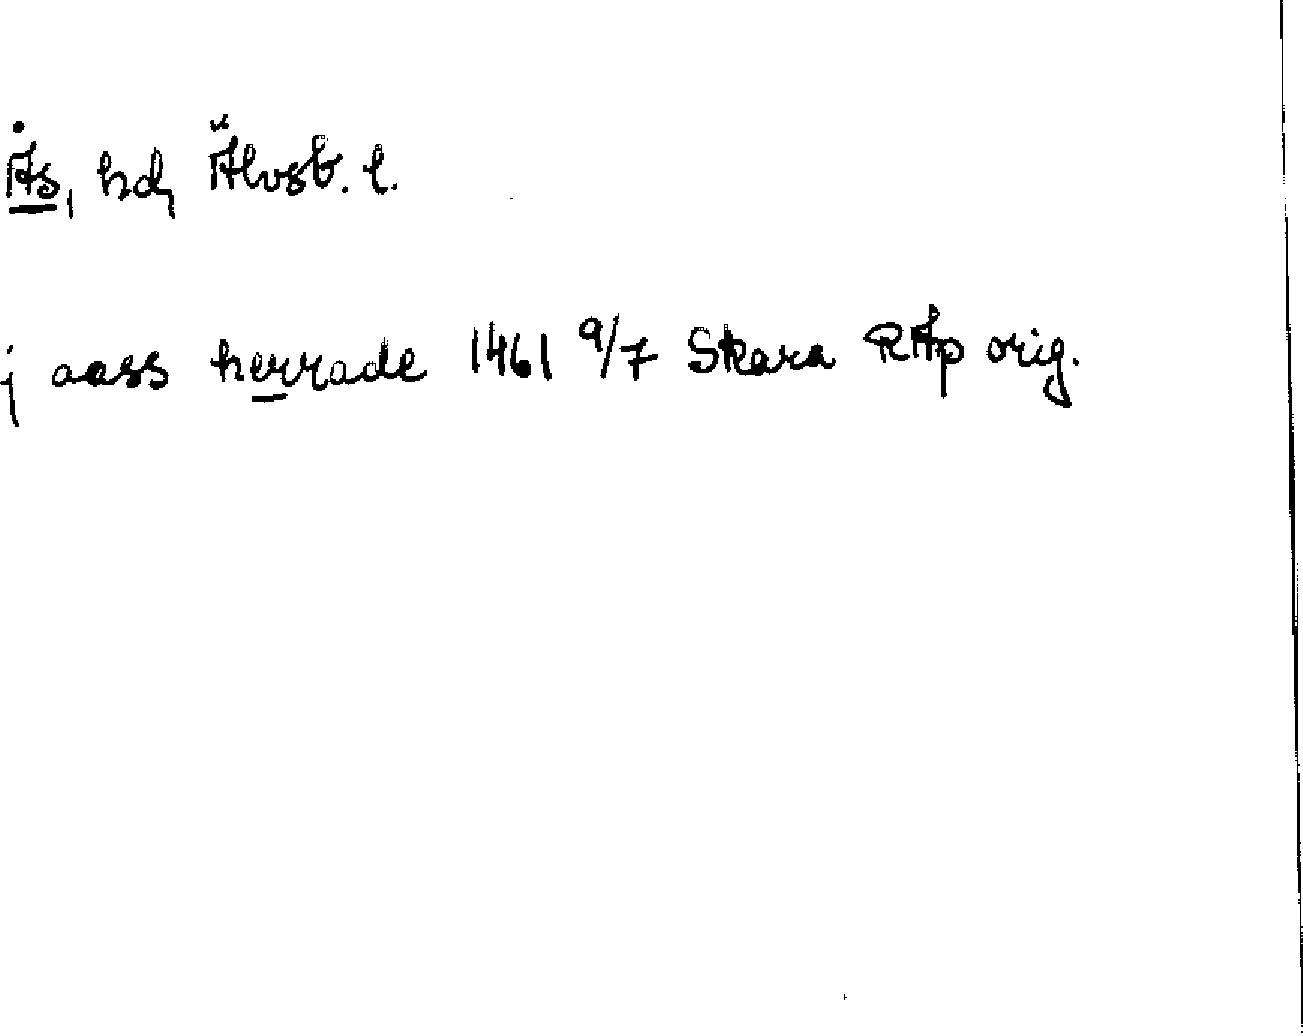 Ås, hd, Älvsb. l.
j aass herrade 1461 9/7 Skara RAp orig.